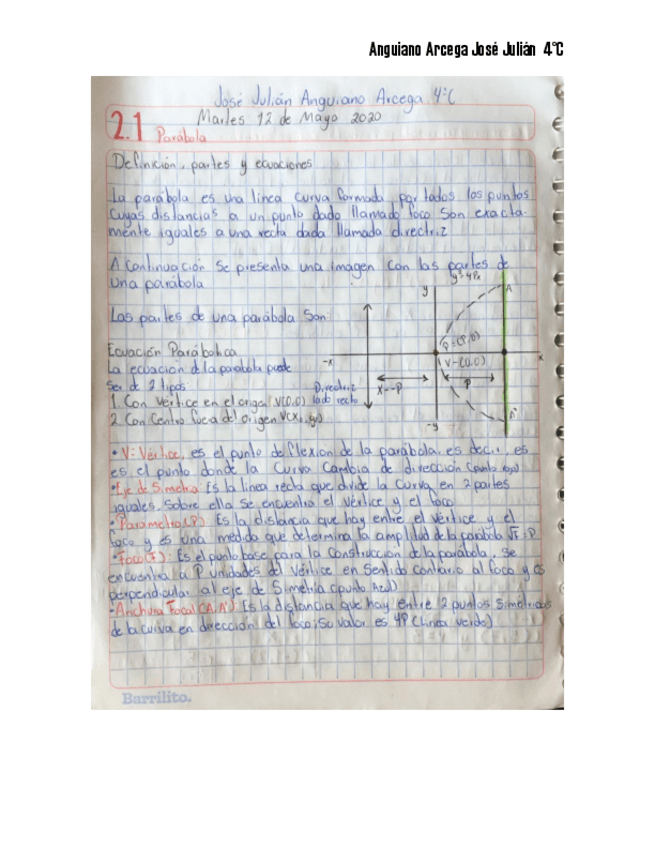 Anguiano Arcega José Julián 4°C
José Julián Anguiano Arcega 4°C
Martes 12 de Mayo 2020
2.1 Parábola
Definición, partes y ecuaciones
La parábola es una linea curva formada por todos los puntos
cuyas distancias a un punto dado llamado foco son exacta-
mente iguales a una recta dada llamada directriz
A continuación se presenta una imagen con las partes de
una parábola
y²=4Px
Las partes de una parábola son:
y
A
P=(P,0)
Ecuación Parábolica
-x
x
La ecuación d la parabola puede
V-(0,0)
ser de 2 tipos:
Directriz
x=-P
P
1. Con vértice en el origen V(0,0)
lado recto
2. Con Centro fuera del origen V(x, y)
A'
-y
• V=Vértice, es el punto de flexion de la parábola, es decir, es
es el punto donde la curva cambia de dirección (punto rojo)
• Eje de Simetria: Es la línea recta que divide la curva en 2 partes
iguales. Sobre ella se encuentra el vértice y el foco
• Parametro(P): Es la distancia que hay entre el vértice y el
foco y es una medida que determina la amplitud de la parábola
• Foco(F): Es el punto base para la construcción de la parábola, se
encuentra a P unidades del vértice en sentido contario al foco y es
perpendicular al eje de Simetria (punto Azul)
• Anchura Focal(A,A'): Es la distancia que hay entre 2 puntos simétricos
de la curva en dirección del foco; su valor es 4P (linea verde)
Barrilito.